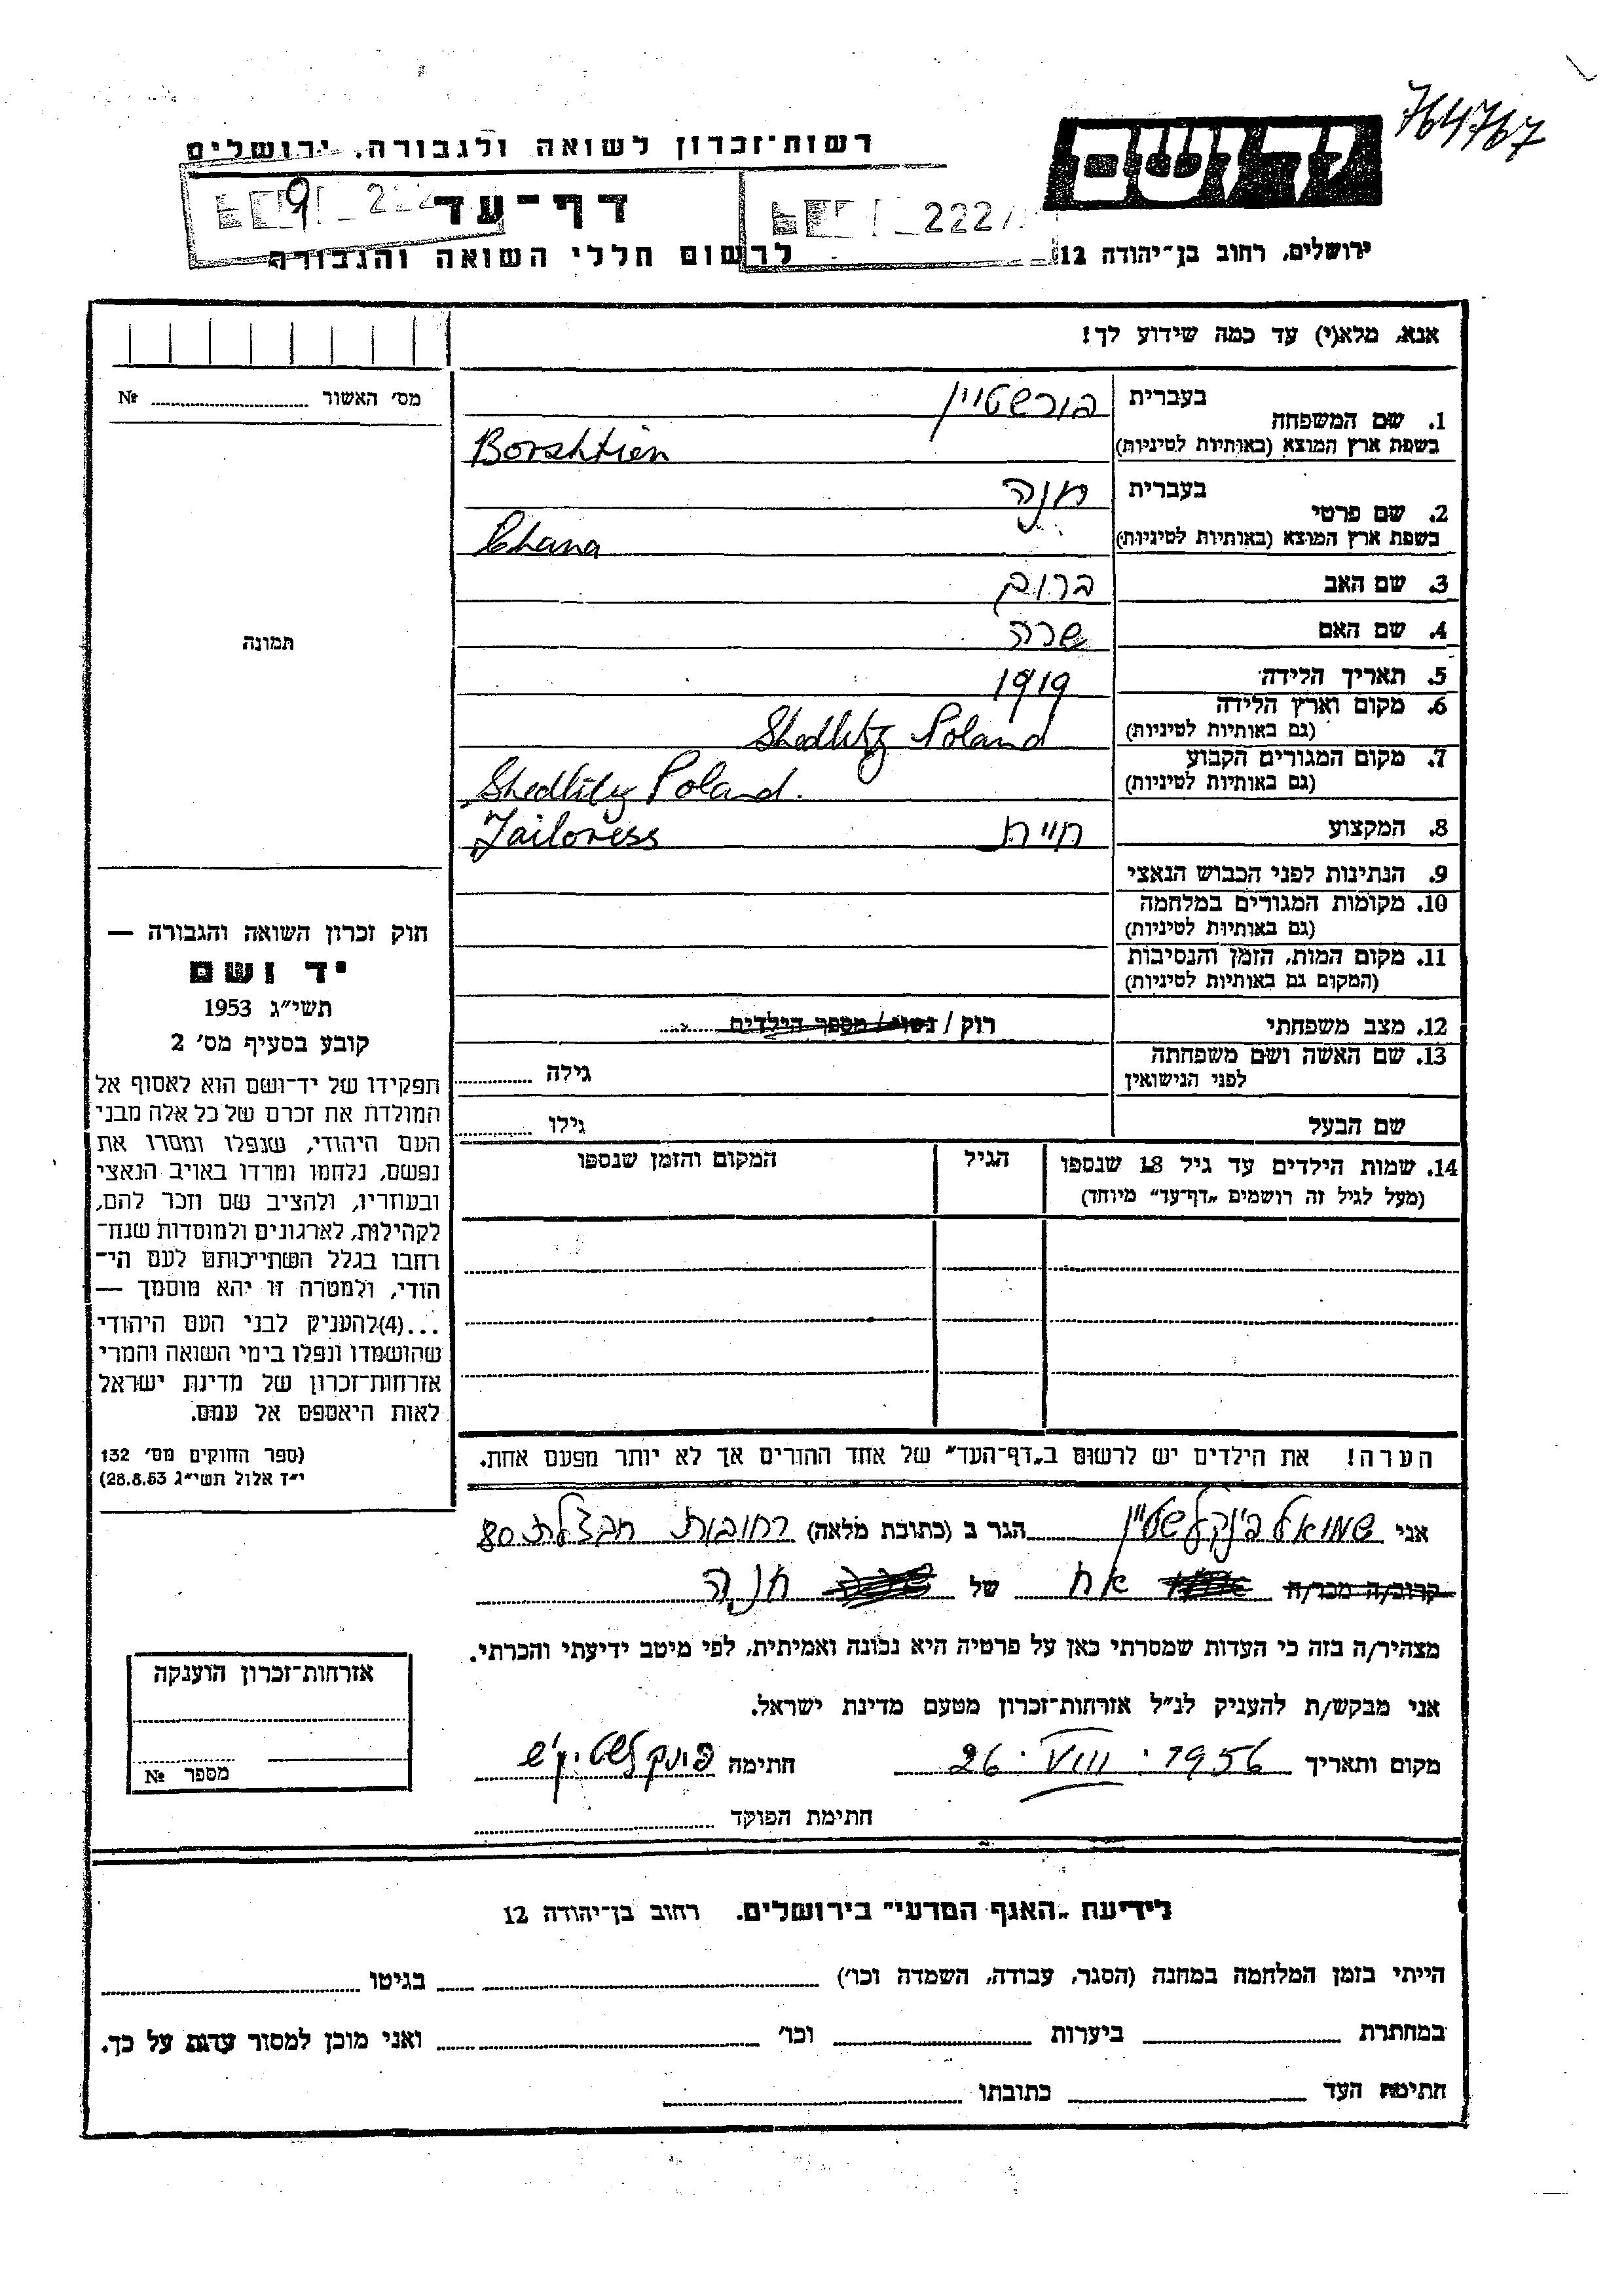 764767
רשות־זכרון לשואה ולגבורה. ירושלים
דף־עד
לרשום חללי השואה והגבורה
222
ירושלים, רחוב בן־יהודה 12
אנא, מלא(י) עד כמה שידוע לך!
מס׳ האשור № 
1. שם המשפחה בעברית בורשטיין
בשפת ארץ המוצא (באותיות לטיניות) Borshtien
2. שם פרטי בעברית חנה
בשפת ארץ המוצא (באותיות לטיניות) Chana
3. שם האב ברוך
4. שם האם שרה
5. תאריך הלידה 1919
6. מקום וארץ הלידה Shedlitz Poland
(גם באותיות לטיניות)
7. מקום המגורים הקבוע Shedlitz Poland.
(גם באותיות לטיניות)
8. המקצוע חייט Tailoress
9. הנתינות לפני הכבוש הנאצי
10. מקומות המגורים במלחמה
(גם באותיות לטיניות)
11. מקום המות, הזמן והנסיבות
(המקום גם באותיות לטיניות)
12. מצב משפחתי רוק / נשוי / מספר הילדים
13. שם האשה ושם משפחתה גילה
לפני הנישואין
שם הבעל גילו
14. שמות הילדים עד גיל 18 שנספו הגיל המקום והזמן שנספו
(מעל לגיל זה רושמים „דף־עד״ מיוחד)
הערה! את הילדים יש לרשום ב„דף־העד״ של אחד ההורים אך לא יותר מפעם אחת.
תמונה
חוק זכרון השואה והגבורה —
יד ושם
תשי״ג 1953
קובע בסעיף מס׳ 2
תפקידו של יד־ושם הוא לאסוף אל
המולדת את זכרם של כל אלה מבני
העם היהודי, שנפלו ומסרו את
נפשם, נלחמו ומרדו באויב הנאצי
ובעוזריו, ולהציב שם וזכר להם,
לקהילות, לארגונים ולמוסדות שנח־
רחבו בגלל השתייכותם לעם הי־
הודי, ולמטרה זו יהא מוסמך —
...(4)להעניק לבני העם היהודי
שהושמדו ונפלו בימי השואה והמרי
אזרחות־זכרון של מדינת ישראל
לאות היאספם אל עמם.
(ספר החוקים מס׳ 132
י״ד אלול תשי״ג 28.8.53)
אני שמואל פינקלשטיין הגר ב (כתובת מלאה) רחובות חבצלת 80
קרוב/ה מכר/ה אח של חנה
מצהיר/ה בזה כי העדות שמסרתי כאן על פרטיה היא נכונה ואמיתית, לפי מיטב ידיעתי והכרתי.
אני מבקש/ת להעניק לנ״ל אזרחות־זכרון מטעם מדינת ישראל.
מקום ותאריך 26. VIII. 1956 חתימה
חתימת הפוקד
אזרחות־זכרון הוענקה
מספר №
לידיעת „האגף המדעי״ בירושלים. רחוב בן־יהודה 12
הייתי בזמן המלחמה במחנה (הסגר, עבודה, השמדה וכו׳) בגיטו
במחתרת ביערות וכו׳ ואני מוכן למסור עדות על כך.
חתימת העד כתובתו